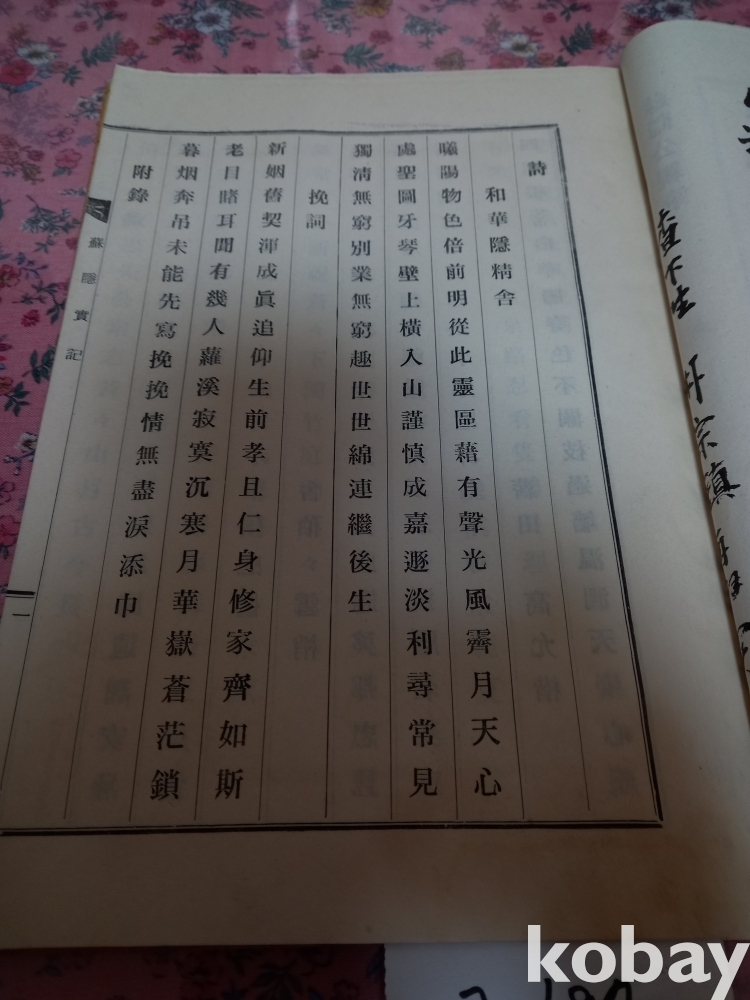 詩
和華隱精舍
曦陽物色倍前明從此靈區藉有聲光風霽月天心
處聖圖牙琴壁上橫入山謹慎成嘉遯淡利尋常見
獨淸無窮別業無窮趣世世綿連繼後生
挽詞
新姻舊契渾成眞追仰生前孝且仁身修家齊如斯
老目睹耳聞有幾人蘿溪寂寞沉寒月華嶽蒼茫鎖
暮烟奔吊未能先寫挽挽情無盡淚添巾
附錄
蘇隱實記
一
下生
宗鎭
kobay